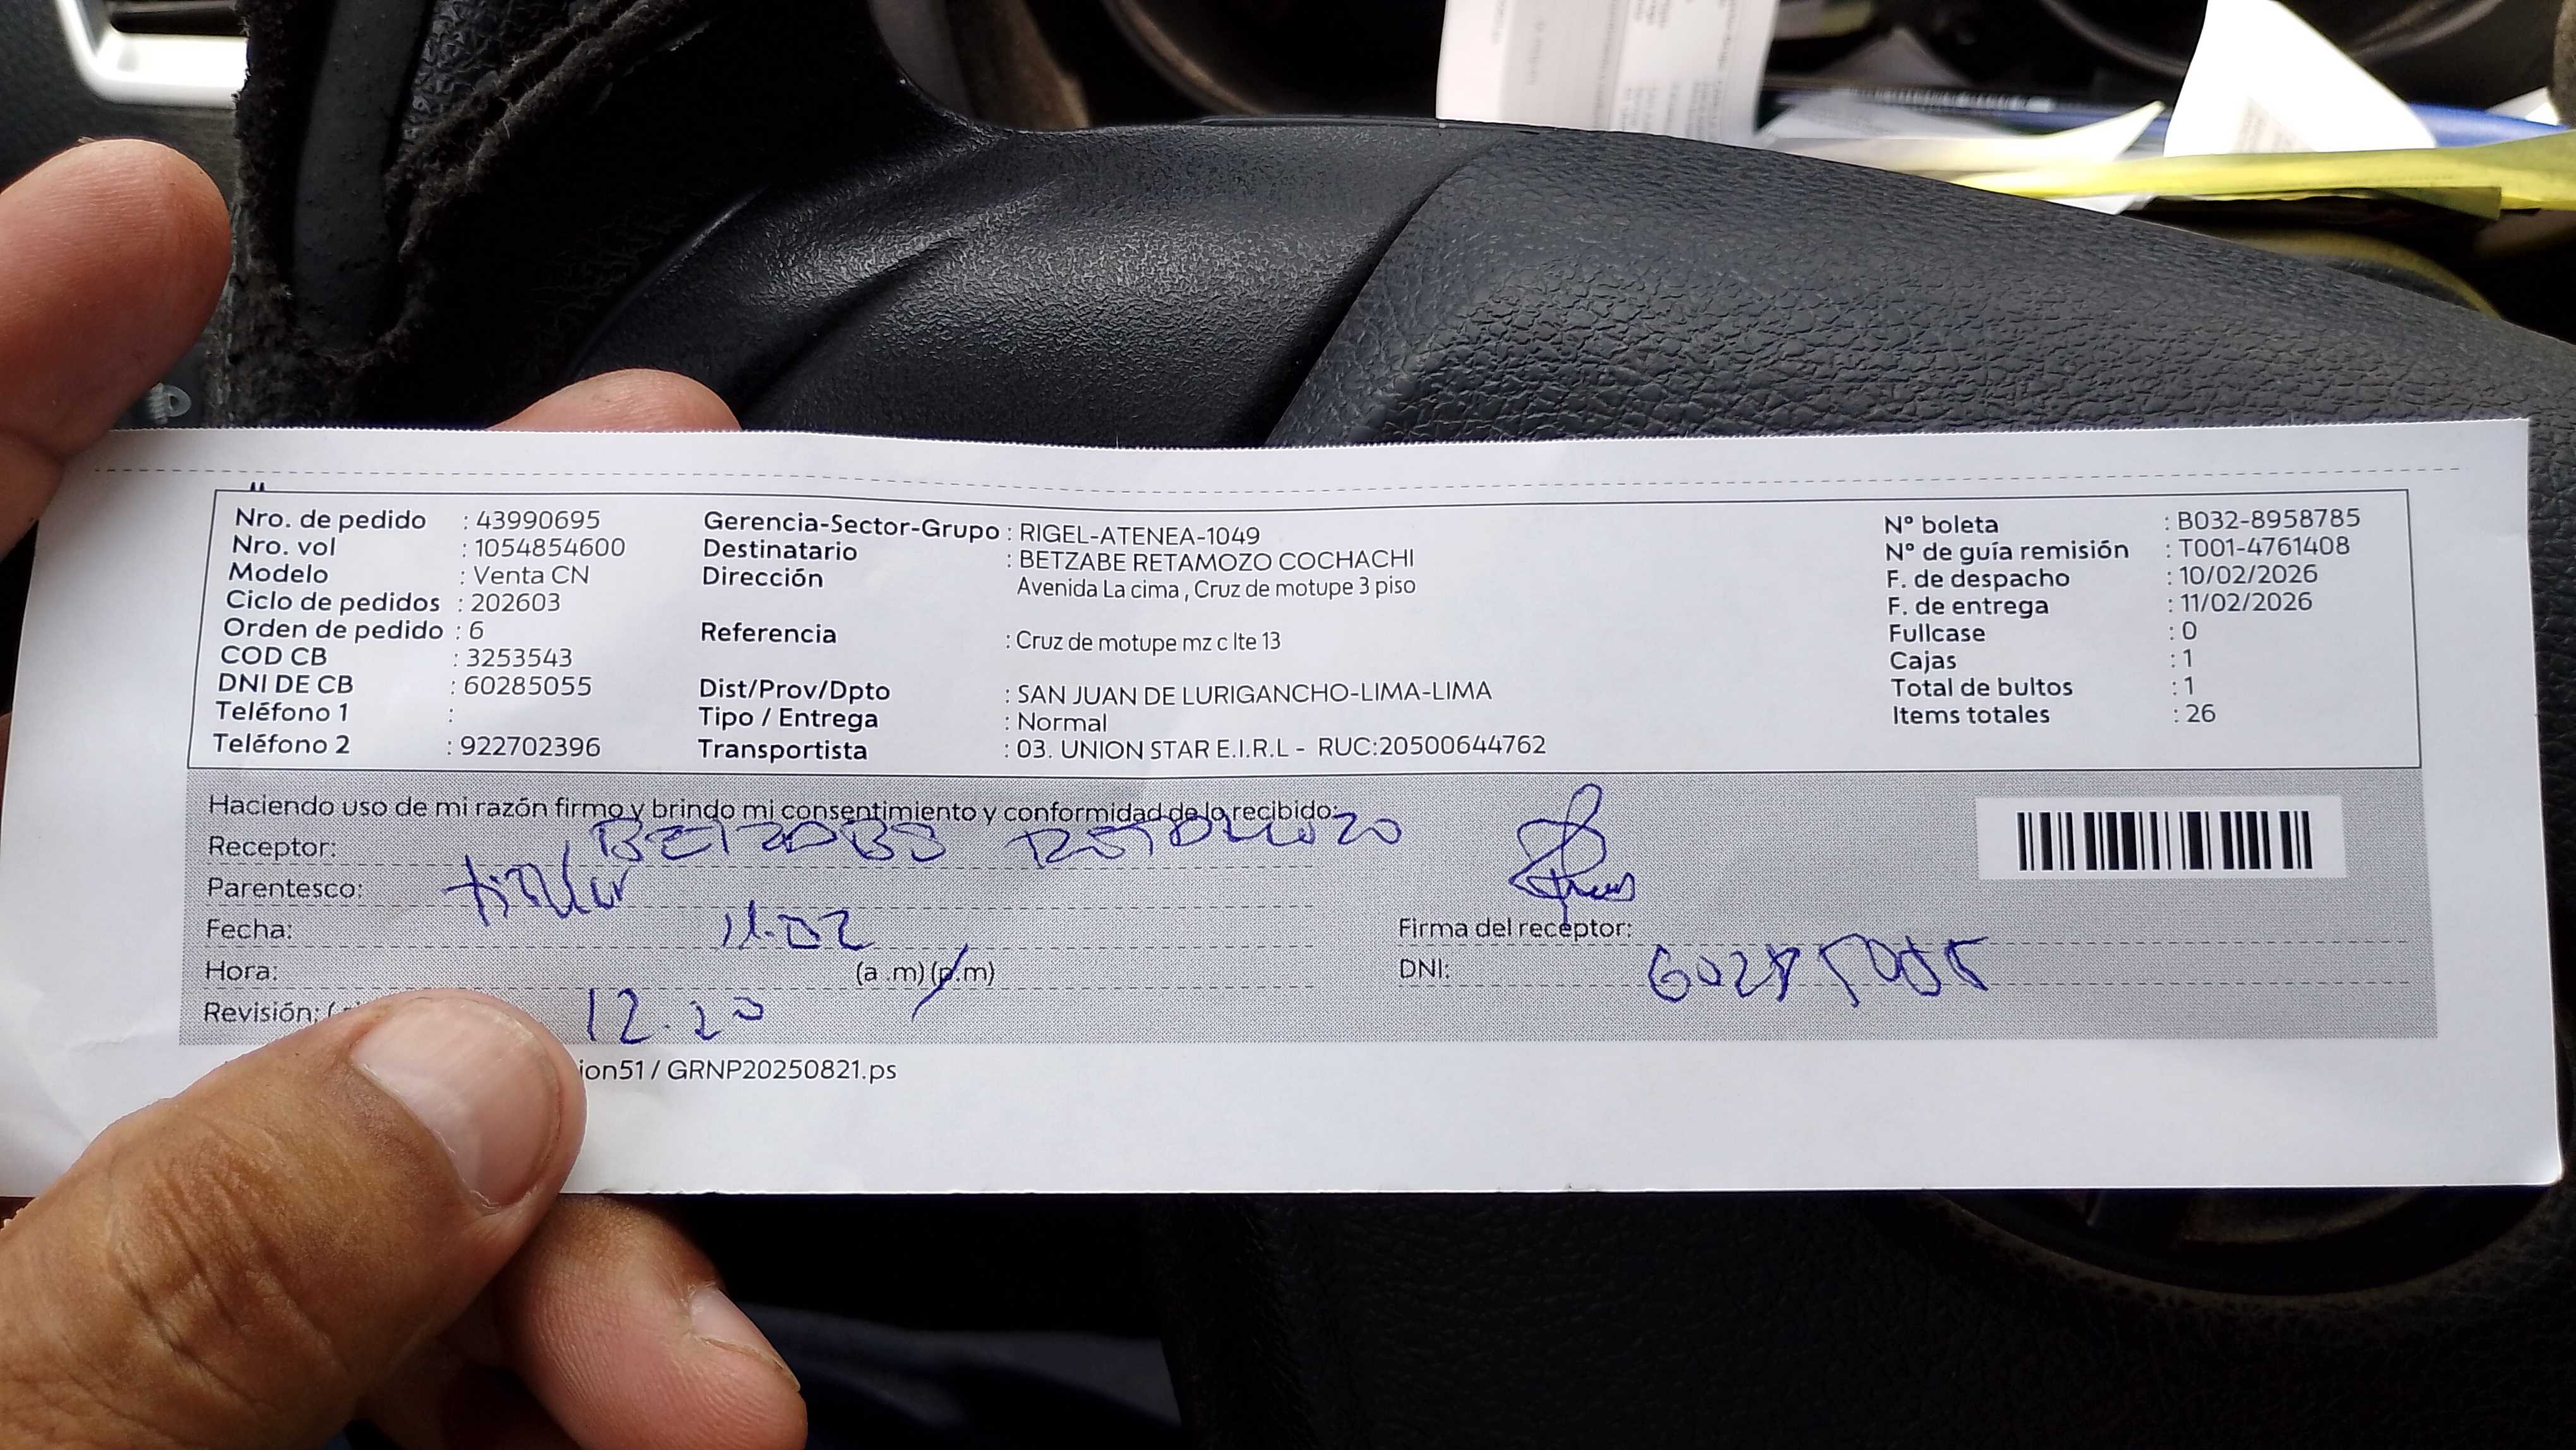 Nro. de pedido : 43990695
Nro. vol : 1054854600
Modelo : Venta CN
Ciclo de pedidos : 202603
Orden de pedido : 6
COD CB : 3253543
DNI DE CB : 60285055
Teléfono 1 :
Teléfono 2 : 922702396
Gerencia-Sector-Grupo : RIGEL-ATENEA-1049
Destinatario : BETZABE RETAMOZO COCHACHI
Dirección Avenida La cima , Cruz de motupe 3 piso
Referencia : Cruz de motupe mz c lte 13
Dist/Prov/Dpto : SAN JUAN DE LURIGANCHO-LIMA-LIMA
Tipo / Entrega : Normal
Transportista : 03. UNION STAR E.I.R.L - RUC:20500644762
N° boleta : B032-8958785
N° de guía remisión : T001-4761408
F. de despacho : 10/02/2026
F. de entrega : 11/02/2026
Fullcase : 0
Cajas : 1
Total de bultos : 1
Items totales : 26
Haciendo uso de mi razón firmo y brindo mi consentimiento y conformidad de lo recibido:
Receptor: BETZABE RETAMOZO
Parentesco: titular
Fecha: 11.02
Hora: 12.20 (a .m) (p.m)
Revisión: (
Firma del receptor:
DNI: 60285055
ion51 / GRNP20250821.ps